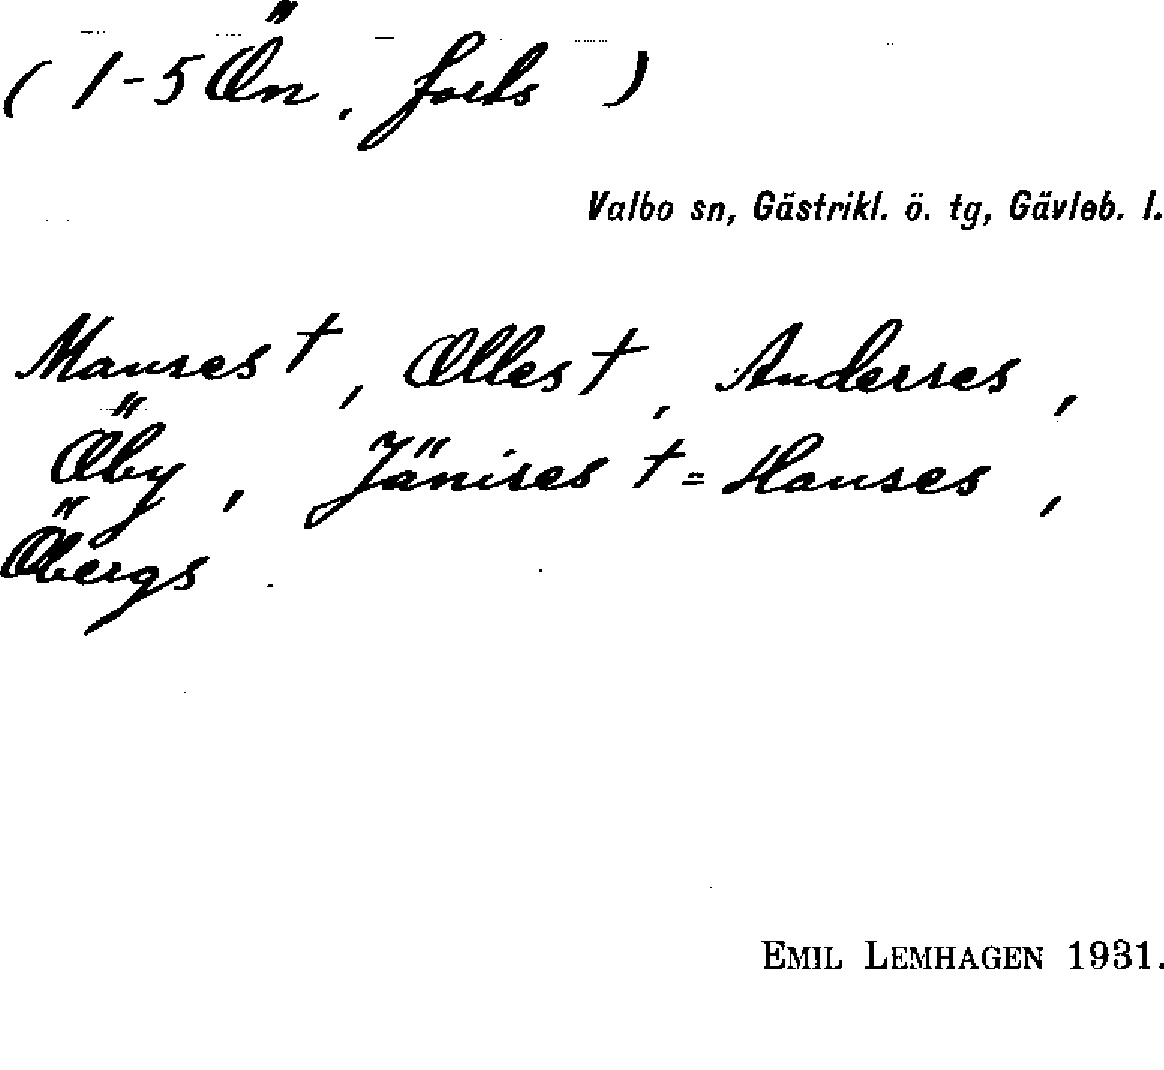 ( 1-5 Ön, forts )
Valbo sn, Gästrikl. ö. tg, Gävleb. l.
Manses †, Olles †, Anderses,
Öby, Jänises † = Hanses,
Öbergs.
EMIL LEMHAGEN 1931.